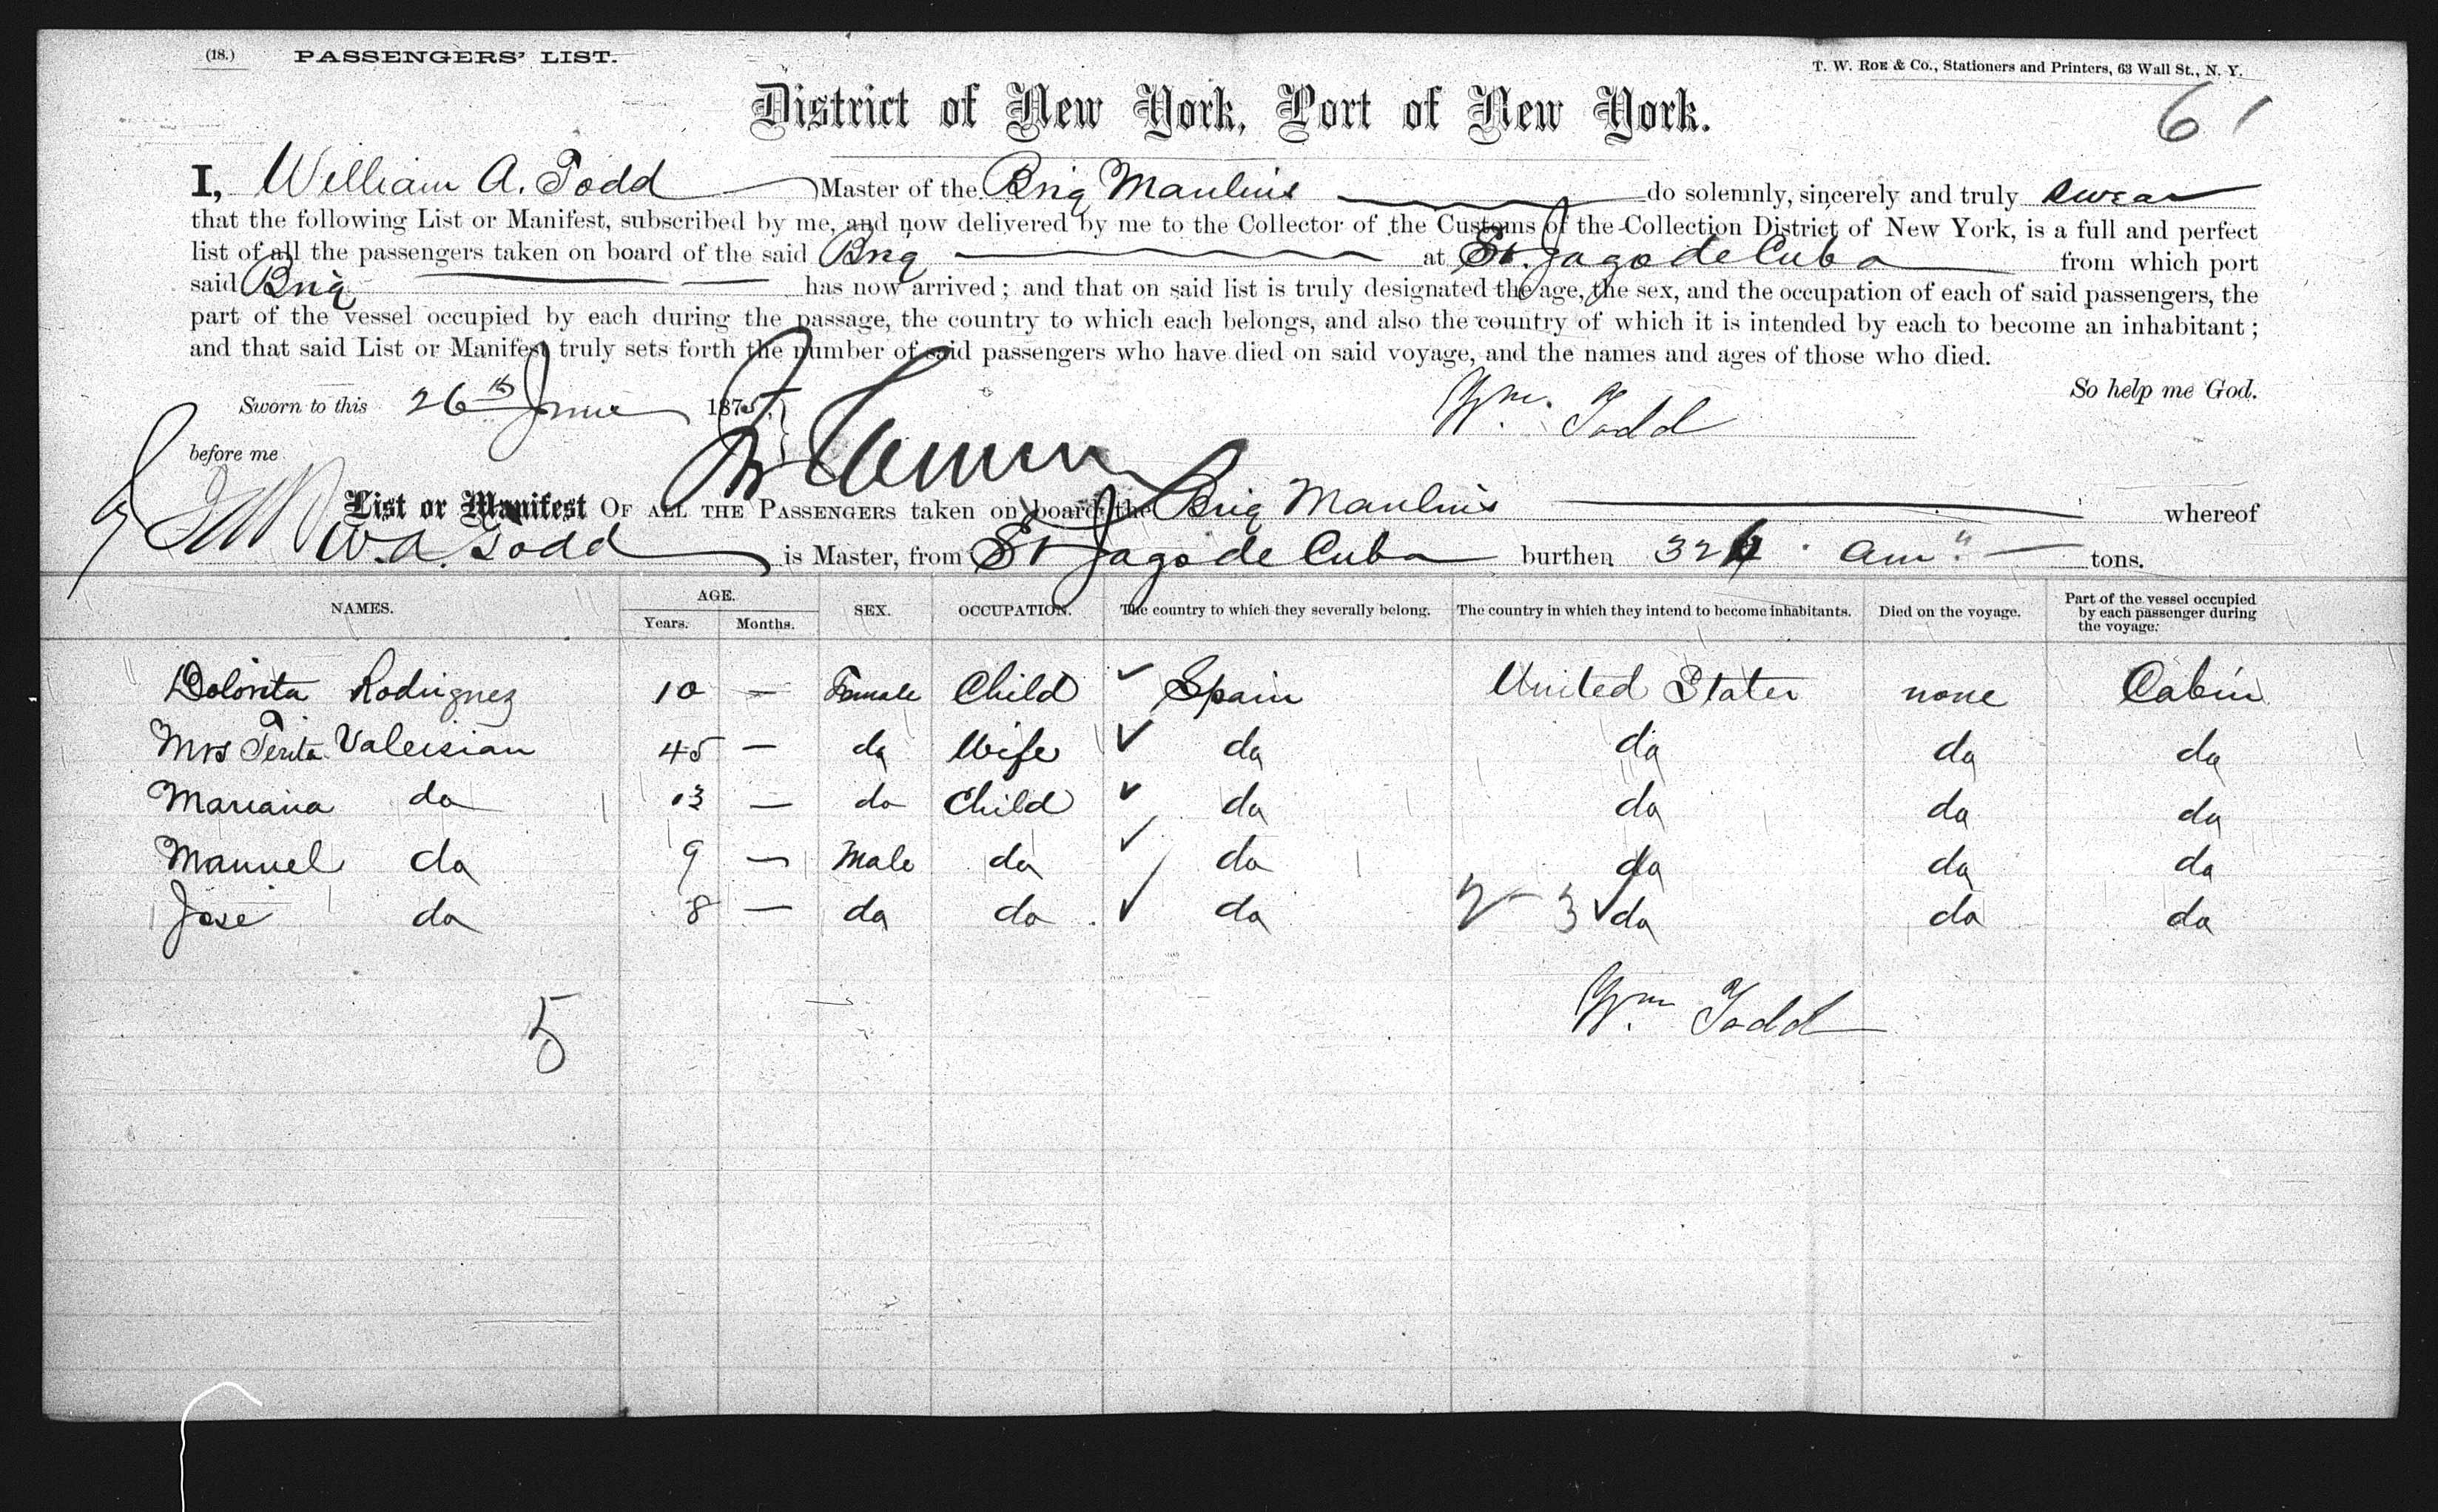 (18.) PASSENGERS' LIST.
T. W. ROE & Co., Stationers and Printers, 63 Wall St., N. Y.
District of New York, Port of New York.
61
I, William A. Todd Master of the Brig Manlius do solemnly, sincerely and truly swear
that the following List or Manifest, subscribed by me, and now delivered by me to the Collector of the Customs of the Collection District of New York, is a full and perfect
list of all the passengers taken on board of the said Brig at St. Jago de Cuba from which port
said Brig has now arrived; and that on said list is truly designated the age, the sex, and the occupation of each of said passengers, the
part of the vessel occupied by each during the passage, the country to which each belongs, and also the country of which it is intended by each to become an inhabitant;
and that said List or Manifest truly sets forth the number of said passengers who have died on said voyage, and the names and ages of those who died.
So help me God.
Sworn to this 26th June 1875
Wm. Todd
before me
List or Manifest OF ALL THE PASSENGERS taken on board the Brig Manlius whereof
W. A. Todd is Master, from St Jago de Cuba burthen tons.
NAMES. AGE. Years. Months. SEX. OCCUPATION. The country to which they severally belong. The country in which they intend to become inhabitants. Died on the voyage. Part of the vessel occupied by each passenger during the voyage.
Dolorita Rodriguez 10 — Female Child ✓ Spain United States none Cabin
Mrs 45 — do Wife ✓ do do do do
Mariana do 13 — do Child ✓ do do do do
Manuel do 9 — Male do ✓ do do do do
Jose do 8 — do do ✓ do 2 3 ✓ do do do
5
Wm. Todd